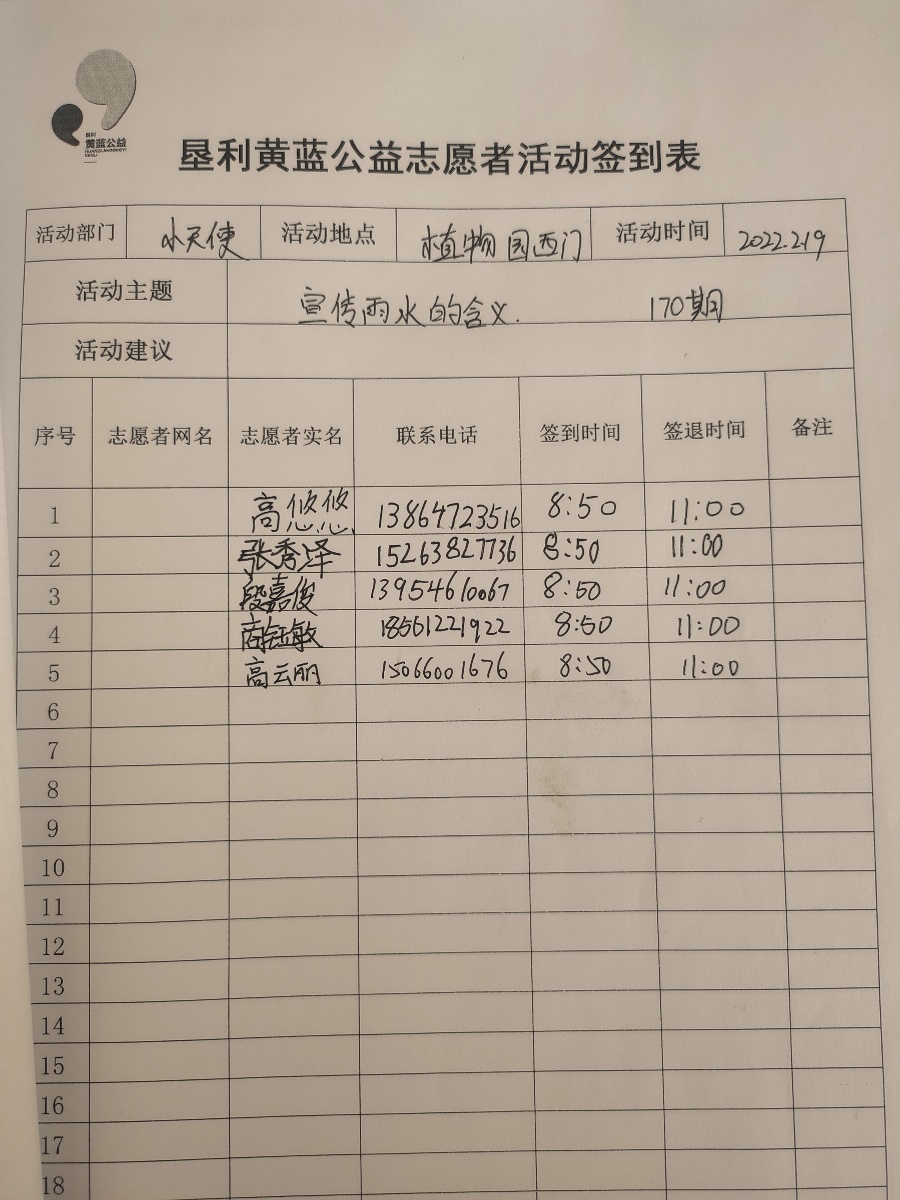 垦利
黄蓝公益
垦利黄蓝公益志愿者活动签到表
活动部门 小天使 活动地点 植物园西门 活动时间 2022.2.19
活动主题 宣传雨水的含义. 170期
活动建议
序号 志愿者网名 志愿者实名 联系电话 签到时间 签退时间 备注
1 高悠悠 13864723516 8:50 11:00
2 张秀泽 15263827736 8:50 11:00
3 段嘉俊 13954610067 8:50 11:00
4 商钰敏 18561221922 8:50 11:00
5 高云丽 15066001676 8:50 11:00
6
7
8
9
10
11
12
13
14
15
16
17
18